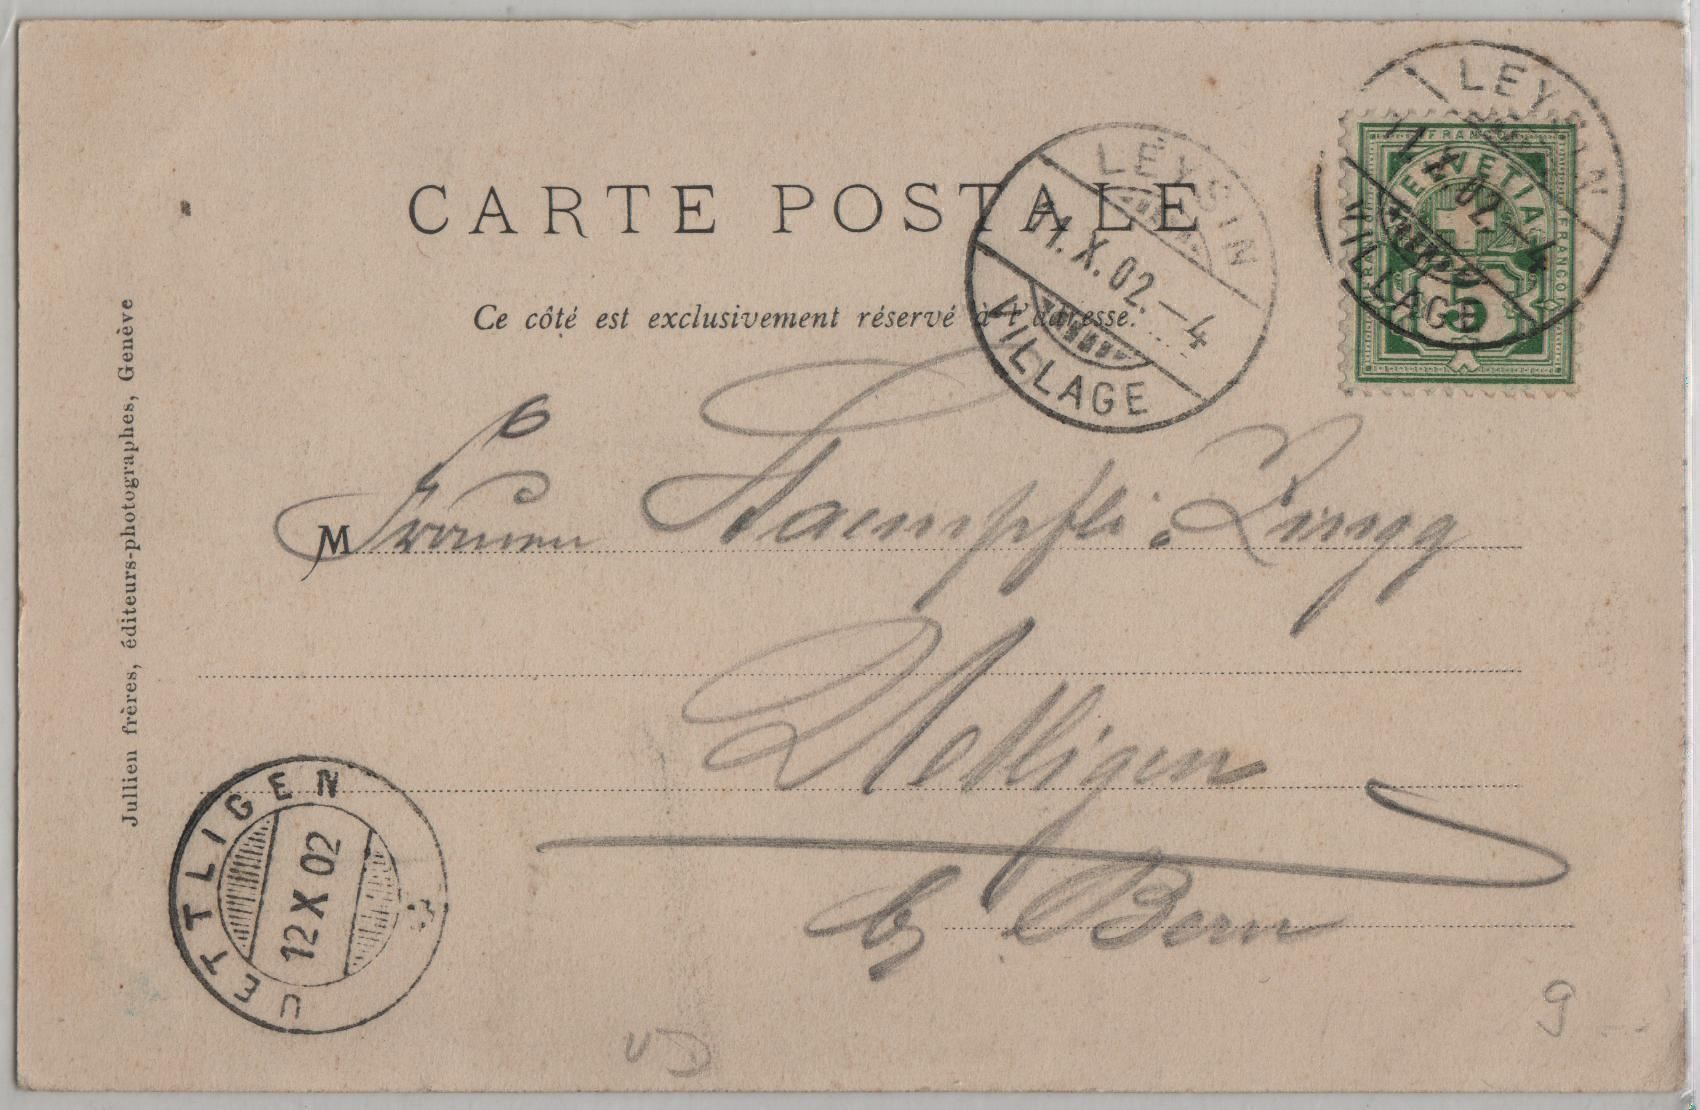 CARTE POSTALE
Ce côté est exclusivement réservé à l'adresse.
LEYSIN
11.X.02.–4
VILLAGE
LEYSIN
11.X.02.–4
VILLAGE
FRANCO
HELVETIA
FRANCO
FRANCO
5
M Frauen Staempfli
Uettligen
b/ Bern
Jullien frères, éditeurs-photographes, Genève
UETTLIGEN
12 X 02
VD
9